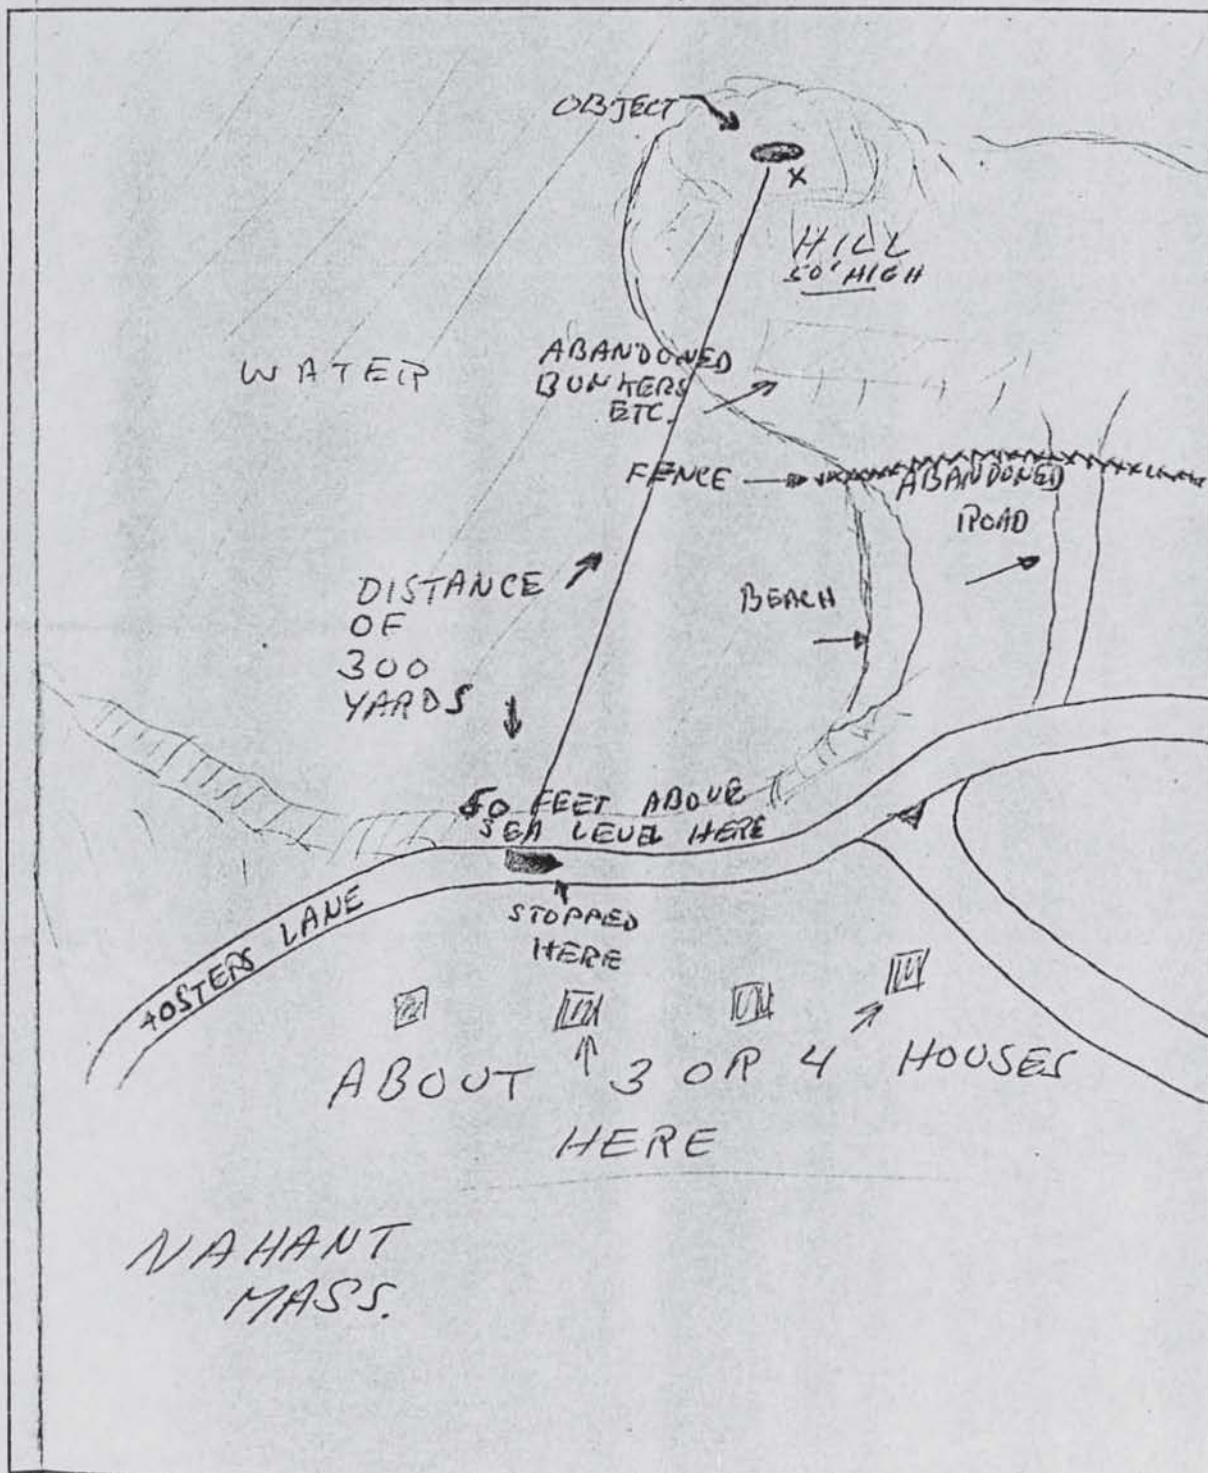 OBJECT
X
HILL
50' HIGH
WATER
ABANDONED
BUNKERS
ETC.
FENCE
ABANDONED
ROAD
DISTANCE
OF
300
YARDS
BEACH
50 FEET ABOVE
SEA LEVEL HERE
STOPPED
HERE
FOSTERS LANE
ABOUT 3 OR 4 HOUSES
HERE
NAHANT
MASS.